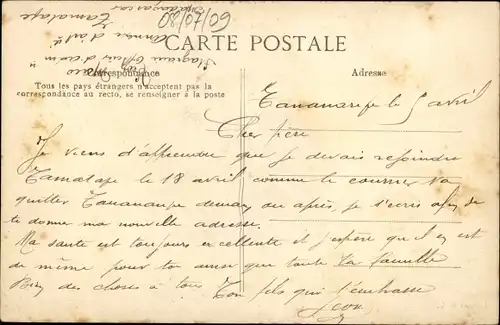 08/07/09
Tamatave
Madagascar
CARTE POSTALE
Correspondance
Adresse
Tous les pays étrangers n'acceptent pas la
correspondance au recto, se renseigner à la poste
Tananarive le 5 avril
Cher père
Je viens d'apprendre que je devais rejoindre
Tamatave le 18 avril comme le courrier va
quitter Tananarive demain ou après, je t'écris afin de
te donner ma nouvelle adresse.
Ma santé est toujours excellente et j'espère qu'il en est
de même pour toi ainsi que toute la famille
Bien des choses à tous Ton fils qui t'embrasse
Léon